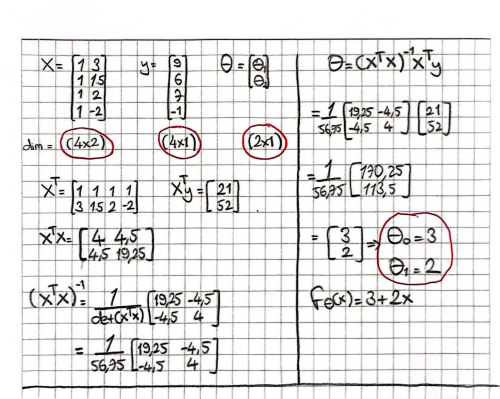 X = [1 3; 1 1.5; 1 2; 1 -2] y = [9; 6; 7; -1] θ = [θ₀; θ₁]
dim = (4x2) (4x1) (2x1)
Xᵀ = [1 1 1 1; 3 1.5 2 -2] Xᵀy = [21; 52]
XᵀX = [4 4,5; 4,5 19,25]
(XᵀX)⁻¹ = 1/det(XᵀX) [19,25 -4,5; -4,5 4]
= 1/56,75 [19,25 -4,5; -4,5 4]
θ = (XᵀX)⁻¹Xᵀy
= 1/56,75 [19,25 -4,5; -4,5 4] [21; 52]
= 1/56,75 [170,25; 113,5]
= [3; 2] ⇒ θ₀ = 3
θ₁ = 2
fθ(x) = 3+2x